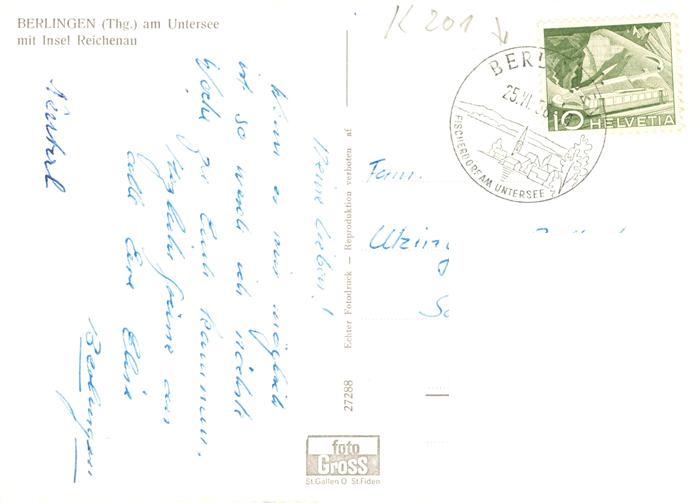 BERLINGEN (Thg.) am Untersee
mit Insel Reichenau
K 201
BERL
25.VI.56
FISCHERDORF AM UNTERSEE
10 HELVETIA
Meine Lieben!
Wenn es mir möglich
ist so werde ich nächste
Woche zu Euch kommen.
Herzliche Grüsse an
alle Eure Elise
Berlingen
Fam.
Utzing
27288 Echter Fotodruck — Reproduktion verboten af
foto
Gross
St. Gallen O St. Fiden